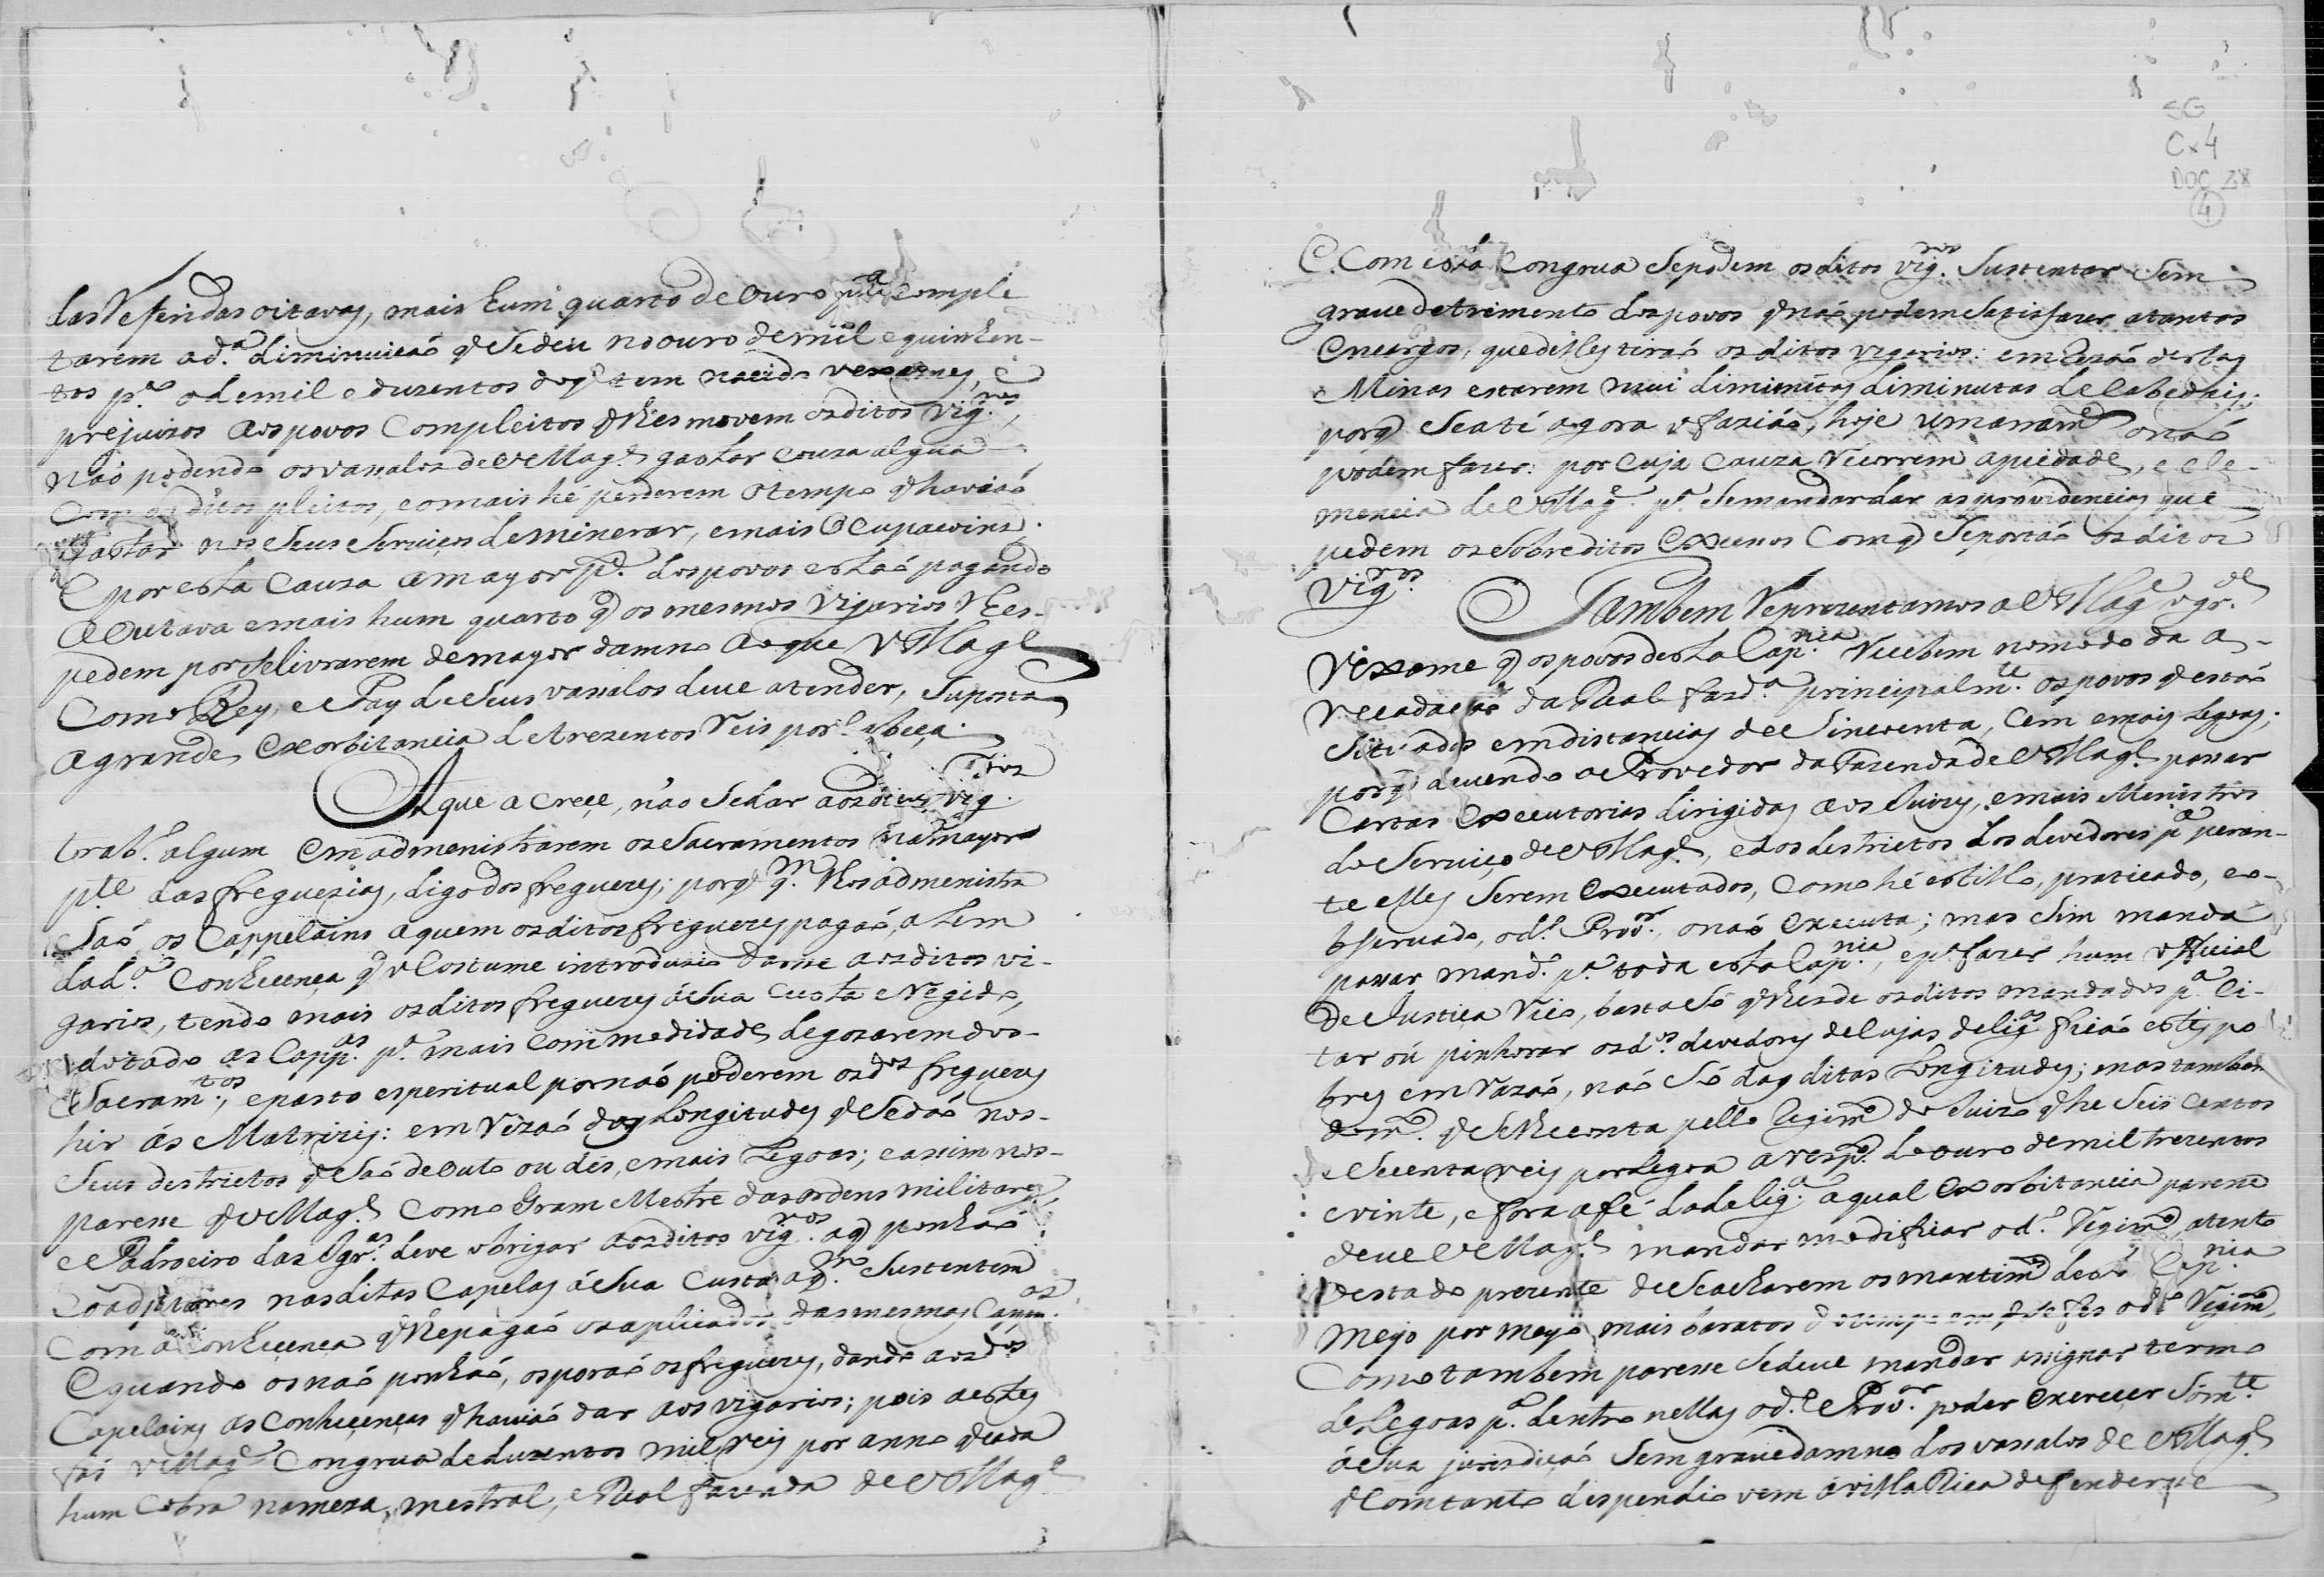 das Referidas oitavas, mais hum quarto de Ouro p.ª comple
tarem a d.ª diminuicaõ q̃ Sedeu no ouro de mil equinhen-
tos p.ª o de mil e duzentos doq̃ tem nacido vexames, e
prejuizos aos povos Compleitos q̃ lhes movem os ditos Vig.ros,
naõ podendo os vaxalos de V Mag.e gastar Couza algũa
Com os ditos pleitos, e o mais hé perderem o tempo q̃ haviaõ
gastar nos Seus Serviços de minerar, emais Ocupacoins.
E por esta Cauza a mayor p.e dos povos estaõ pagando
a Outava emais hum quarto q̃ os mesmos Vigarios lhes-
pedem por Selivrarem de mayor damno ao que V Mag.e
Como Rey, e Pay de Seus vaxalos deve atender, Suposta
a grande Exorbitancia de trezentos Reis por Cabeça.
Aque acrece, não Sedar aos ditos Vig.rios
trab.º algum em admenistrarem os Sacramentos na mayor
p.te das freguezias, digo dos freguezes; porq̃ q.m lhos admenistra
Saõ, os Cappelains aquem os ditos freguezes pagaõ, alem
dad.ª Conhecença q̃ o Costume introduzio darse aos ditos vi-
garios, tendo mais os ditos freguezes á Sua Custa eregido,
e dotado as Capp.as p.ª mais Commedidade de gozarem dos-
Sacram.tos, e pasto esperitual por naõ poderem os d.os freguezes
hir ás Matrizes: em Rezaõ das Longitudes q̃ Sedaõ nos-
Seus destrictos q̃ Saõ de outo ou dés, emais Legoas; e assim nos-
paresse q̃ V Mag.e Como Gram Mestre das ordens militares,
e Padroeiro das Igr.as deve obrigar aos ditos vig.ros aq̃ ponhaõ
Coadjutores nas ditas Capelas á Sua Custa aq.m Sustentem
Com a Conhecença q̃ lhe pagaõ os aplicados das mesmas Capp.as
E quando os naõ ponhaõ, os poraõ os freguezes, dando aos d.os
Capelains as Conhecenças q̃ haviaõ dar aos vigarios; pois aestes
fás V Mag.e Congrua de duzentos mil reis por anno q̃ cada
hum Cobra na meza, mestral, e Real fazenda de V Mag.e
SG
Cx 4
DOC 28
4
E. Com esta Congrua Sepodem os ditos vig.ros Sustentar Sem
grave detrimento dos povos q̃ naõ podem Setisfazer atantos
Encargos, que delles tiraõ os ditos vigarios: em Rezaõ destas
Minas estarem mui diminutas diminutas de Cabedais;
porq̃ Se até agora o faziaõ, hoje umanam.te o naõ
podem fazer: por Cuja Cauza recorrem apiedade, e cle-
mencia de V Mag.e p.ª Se mandar dar as providencias que
pedem os Sobreditos Excessos Comq̃ Seportaõ os ditos
Vig.ros
Tambem Reprezentamos a V Mag.e o gr.de
Vexame q̃ os povos desta Cap.nia Recebem no modo da a-
Recadaçaõ da Real fazd.ª principalm.te os povos q̃ estaõ
Situados em distancias de Sincoenta, Cem emais Legoas;
porq̃ devendo o Provedor da Fazenda de V Mag.e passar
Cartas Executorias dirigidas aos Juizes, emais Menistros
do Serviço de V Mag.e, e dos destrictos dos devedores p.ª peran-
te elles Serem Executados, Como hé estillo, praticado, eo-
bservado, o d.º Prov.or o naõ executa; mas Sim manda
passar mand.º p.ª toda esta Cap.nia, e p.ª fazer hum official
de Justiça Rico, basta Só q̃ lhes de os ditos mandados p.ª Ci-
tar oú pinhorar os d.os devedores de Cujas delig.as ficaõ estes po
bres em Razaõ, naõ Só das ditas Longitudes; mas tambem
do m.º q̃ Selhe Conta pello Regim.º do Juizo q̃ he Seis Centos
eSecenta reis por Legoa a resp.º de ouro de mil trezentos
evinte, e fora a fé da delig.ª aqual Exorbitancia paresse
deve V Mag.e mandar modificar o d.º Regim.º, atento
o estado prezente de Seacharem os mantim.os desta Cap.nia
Meyo por meyo mais baratos do tempo em q̃ Se fes o d.º Regim.º,
Como tambem paresse Sedeve mandar asignar termo
de Legoas p.ª dentro nellas o d.º Prov.or poder exercer Som.te
á Sua jurisdicaõ Sem grave damno dos vaxalos de V Mag.e
q̃ Com tanto dispendio vem a villa Rica defenderse